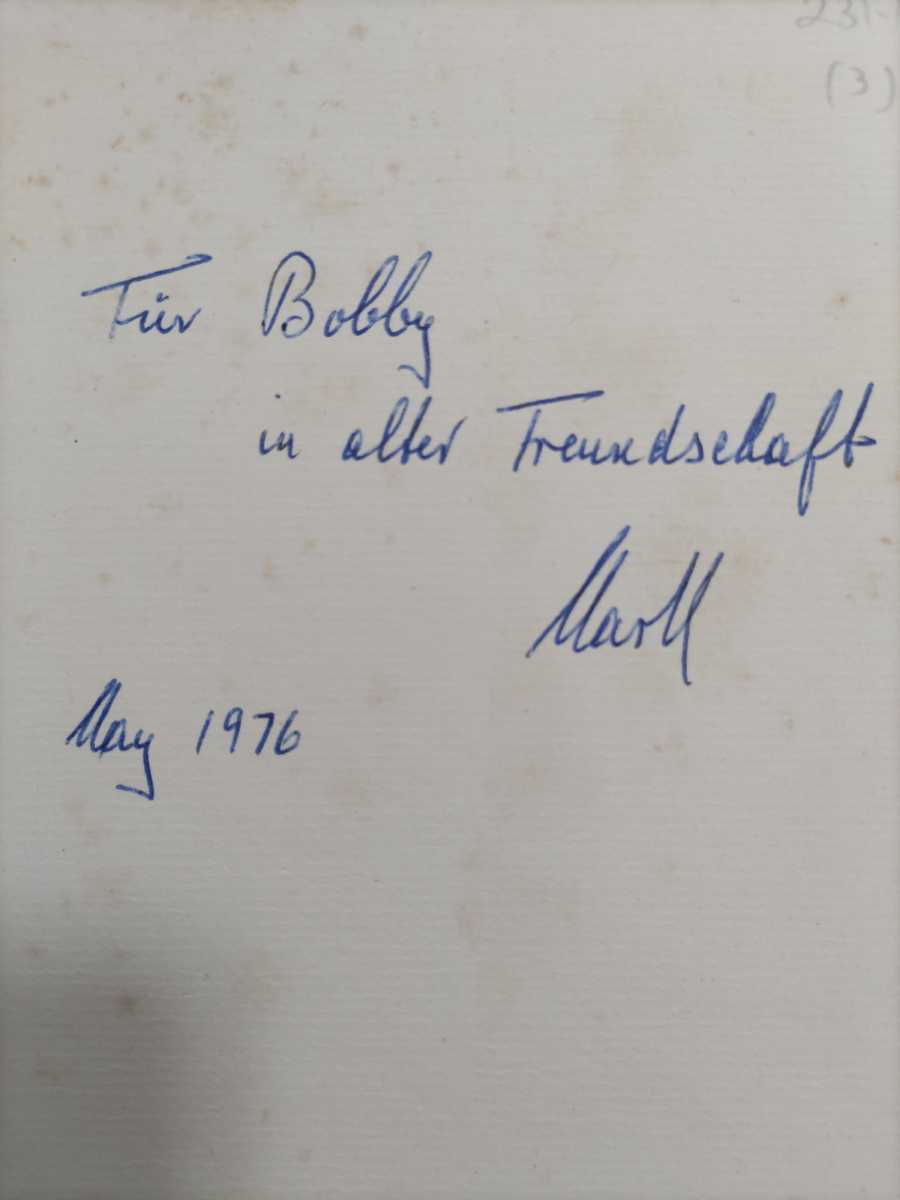 (3)
Für Bobby
in alter Freundschaft
May 1976